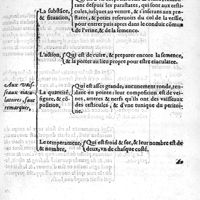 parastates, qui passant par sur les testi-
La substāce, & situation,
cules, iusques au ventre, & s'inserent aux pro-
states, & petits reseruoirs du col de la vessie,
pour entrer puis apres dans le conduit commun
de l'vrine, & de la semence.
L'action, Qui est de cuire, & preparer encore la semence,
& la porter au lieu propre pour estre eiaculatoire.
Aux vais-
seaux eiacu-
latoires, faut
remarquer,
La quantité, figure, & cōposition,
Qui est assez grande, anciennement ronde, ten-
duë en pointe: leur composition est de vei-
nes, arteres & nerfs qu'ils ont des vaisseaux
des testicules, & d'vne tunique du peritoi-
ne.
Le temperament, & nombre,
Qui est froid & sec, & leur nombre est de
deux, vn de chaque costé.